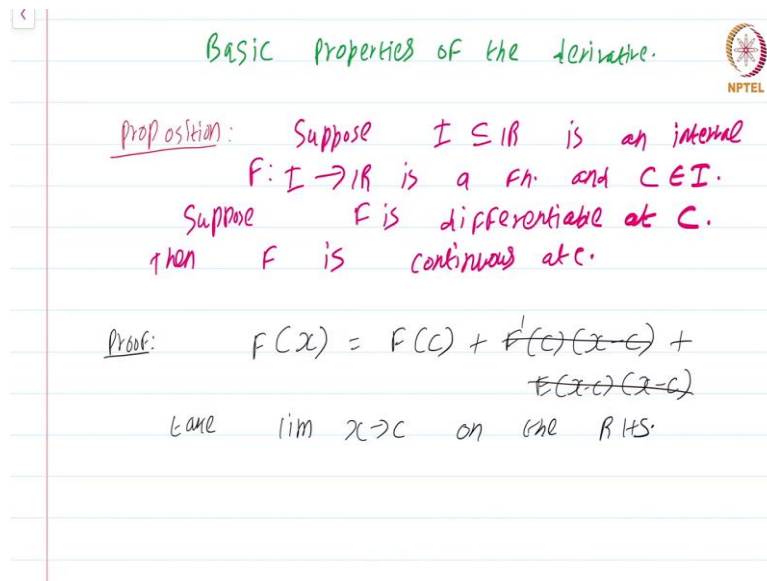 Basic Properties of the derivative.
NPTEL
Proposition: Suppose I ⊆ IR is an interval
F: I → IR is a Fn. and C ∈ I.
Suppose F is differentiable at C.
Then F is continuous at c.
Proof: F(x) = F(c) + F'(c)(x-c) +
E(x-c)(x-c)
take lim x→c on the RHS.